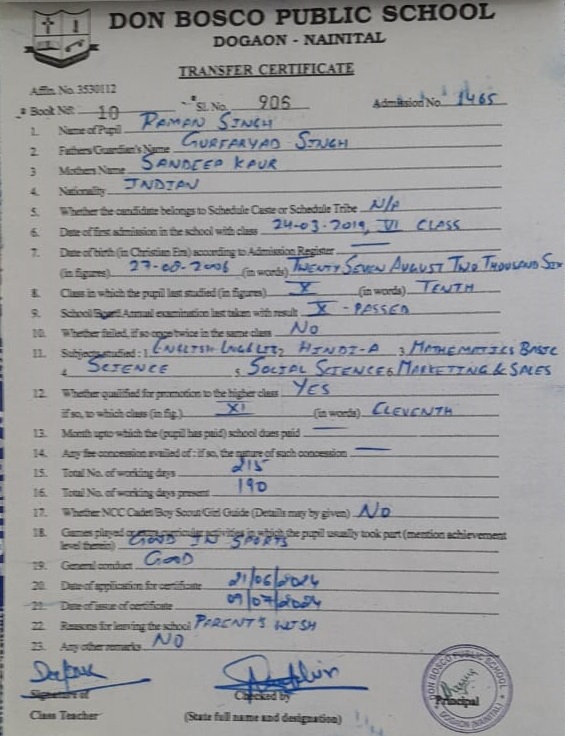 DON BOSCO PUBLIC SCHOOL
DOGAON - NAINITAL
TRANSFER CERTIFICATE
Affin. No. 3530112
Book No. 10 Sl. No. 906 Admission No. 1465
1. Name of Pupil RAMAN SINGH
2. Fathers/Guardian's Name GURFARYAD SINGH
3 Mothers Name SANDEEP KAUR
4. Nationality INDIAN
5. Whether the candidate belongs to Schedule Caste or Schedule Tribe N/A
6. Date of first admission in the school with class 24-03-2019, VI CLASS
7. Date of birth (in Christian Era) according to Admission Register —
(in figures) 27-08-2006 (in words) TWENTY SEVEN AUGUST TWO THOUSAND SIX
8. Class in which the pupil last studied (in figures) X (in words) TENTH
9. School/Board Annual examination last taken with result X - PASSED
10. Whether failed, if so once/twice in the same class NO
11. Subjects studied : 1. ENGLISH 2 HINDI-A 3 MATHEMATICS BASIC
4. SCIENCE 5. SOCIAL SCIENCE 6. MARKETING & SALES
12. Whether qualified for promotion to the higher class YES
if so, to which class (in fig.) XI (in words) ELEVENTH
13. Month upto which the (pupil has paid) school dues paid —
14. Any fee concession availed of : if so, the nature of such concession —
15. Total No. of working days 215
16. Total No. of working days present 190
17. Whether NCC Cadet/Boy Scout/Girl Guide (Details may by given) NO
18. Games played or extra curricular activities in which the pupil usually took part (mention achievement
level therein) GOOD IN SPORTS
19. General conduct GOOD
20. Date of application for certificate 21/06/2024
21. Date of issue of certificate 09/07/2024
22. Reasons for leaving the school PARENT'S WISH
23. Any other remarks NO
Signature of Checked by Principal
Class Teacher (State full name and designation)
DON BOSCO PUBLIC SCHOOL
DOGAON (NAINITAL)